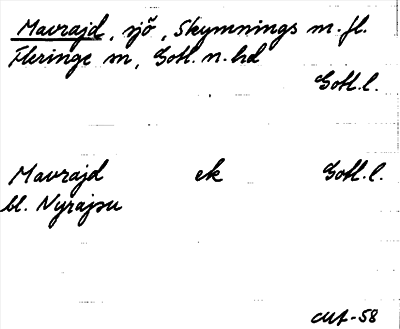 Mavrajd, sjö, Skymnings m.fl.
Fleringe sn, Gotl. n. hd
Gotl. l.
Mavrajd ek Gotl. l.
bl. Nyrajsu
-58